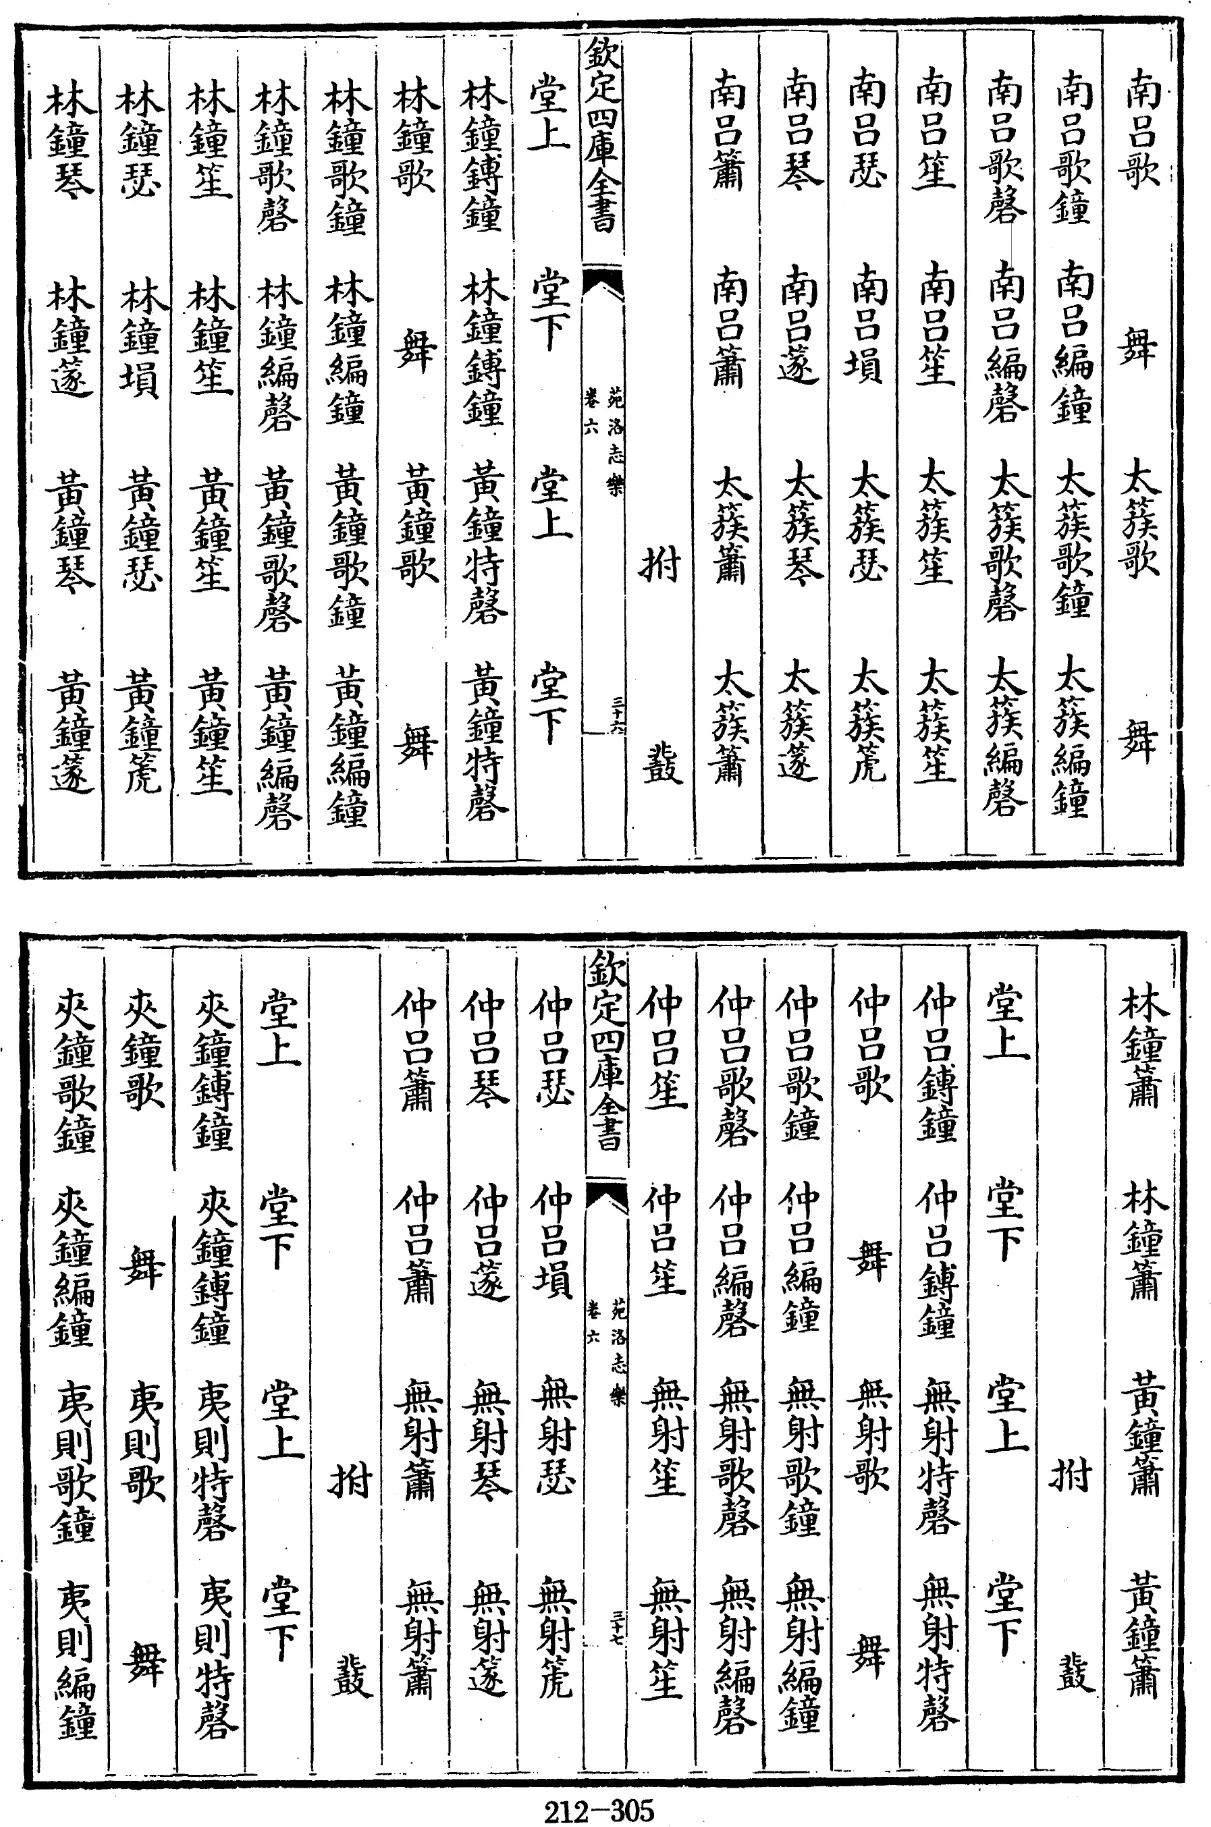 南呂歌 舞 太簇歌 舞
南呂歌鐘 南呂編鐘 太簇歌鐘 太簇編鐘
南呂歌磬 南呂編磬 太簇歌磬 太簇編磬
南呂笙 南呂笙 太簇笙 太簇笙
南呂瑟 南呂塤 太簇瑟 太簇箎
南呂琴 南呂篴 太簇琴 太簇篴
南呂簫 南呂簫 太簇簫 太簇簫
拊 鼗
欽定四庫全書 苑洛志樂 卷六 三十六
堂上 堂下 堂上 堂下
林鐘鎛鐘 林鐘鎛鐘 黃鐘特磬 黃鐘特磬
林鐘歌 舞 黃鐘歌 舞
林鐘歌鐘 林鐘編鐘 黃鐘歌鐘 黃鐘編鐘
林鐘歌磬 林鐘編磬 黃鐘歌磬 黃鐘編磬
林鐘笙 林鐘笙 黃鐘笙 黃鐘笙
林鐘瑟 林鐘塤 黃鐘瑟 黃鐘箎
林鐘琴 林鐘篴 黃鐘琴 黃鐘篴
林鐘簫 林鐘簫 黃鐘簫 黃鐘簫
拊 鼗
堂上 堂下 堂上 堂下
仲呂鎛鐘 仲呂鎛鐘 無射特磬 無射特磬
仲呂歌 舞 無射歌 舞
仲呂歌鐘 仲呂編鐘 無射歌鐘 無射編鐘
仲呂歌磬 仲呂編磬 無射歌磬 無射編磬
仲呂笙 仲呂笙 無射笙 無射笙
欽定四庫全書 苑洛志樂 卷六 三十七
仲呂瑟 仲呂塤 無射瑟 無射箎
仲呂琴 仲呂篴 無射琴 無射篴
仲呂簫 仲呂簫 無射簫 無射簫
拊 鼗
堂上 堂下 堂上 堂下
夾鐘鎛鐘 夾鐘鎛鐘 夷則特磬 夷則特磬
夾鐘歌 舞 夷則歌 舞
夾鐘歌鐘 夾鐘編鐘 夷則歌鐘 夷則編鐘
212-305